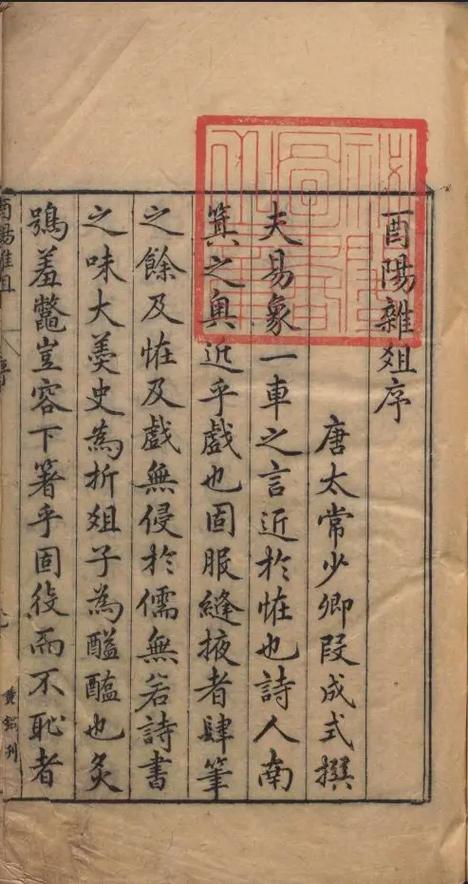 酉陽雜俎序
唐太常少卿段成式撰
夫易象一車之言近於恠也詩人南
箕之奧近乎戲也固服縫掖者肆筆
之餘及恠及戲無侵於儒無若詩書
之味大羹史為折俎子為醯醢也炙
鴞羞鼈豈容下箸乎固役而不恥者
酉陽雜俎
序